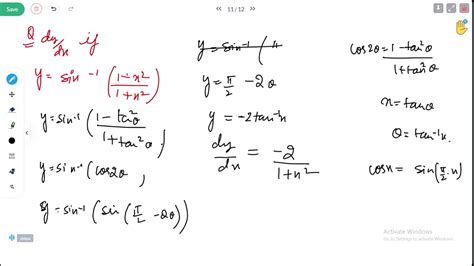 Save
11 / 12
Q dy/dx if
y = sin⁻¹ (1-x²/1+x²)
y = sin⁻¹ (1 - tan²θ/1 + tan²θ)
y = sin⁻¹ (cos2θ)
y = sin⁻¹ (sin (π/2 - 2θ))
y = sin⁻¹ (
y = π/2 - 2θ
y = -2tan⁻¹x
dy/dx = -2/1+x²
cos2θ = 1 - tan²θ/1 + tan²θ
x = tanθ
θ = tan⁻¹x
cosx = sin(π/2 - x)
Activate Windows
Go to Settings to activate Windows.